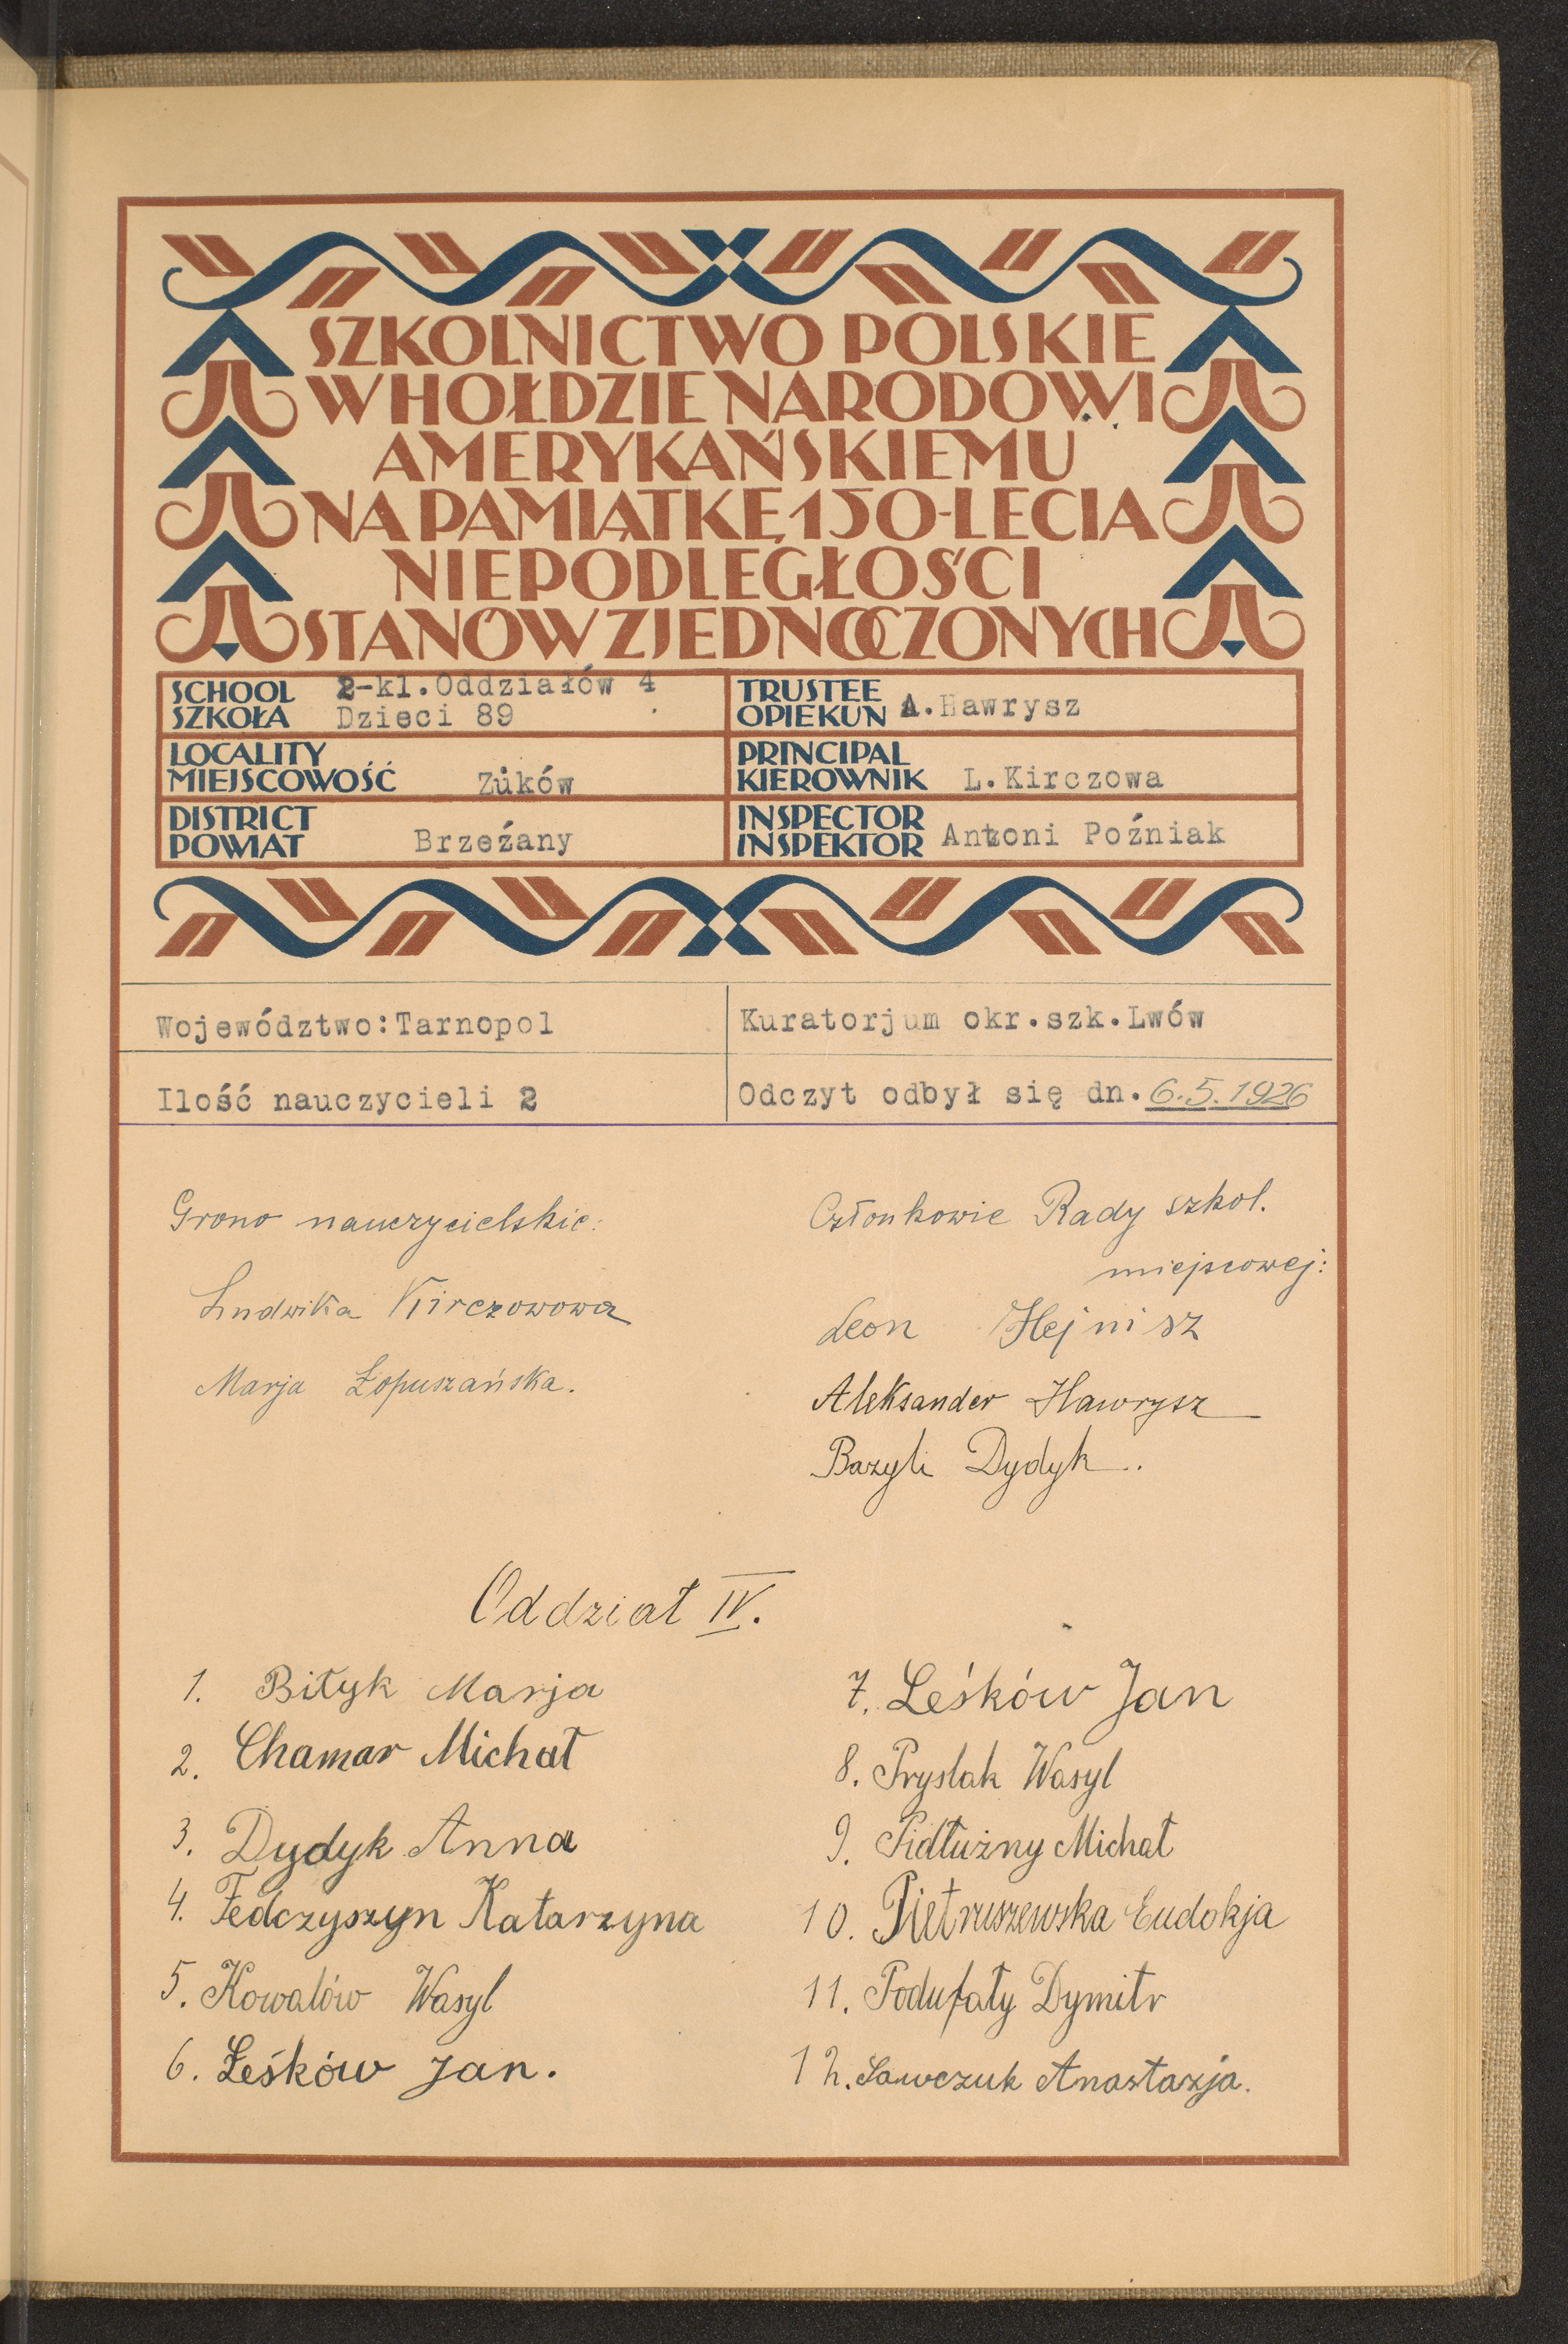 SZKOLNICTWO POLSKIE
W HOŁDZIE NARODOWI
AMERYKAŃSKIEMU
NA PAMIĄTKĘ 150-LECIA
NIEPODLEGŁOŚCI
STANÓW ZJEDNOCZONYCH
SCHOOL
SZKOŁA
2-kl.Oddziałów 4
Dzieci 89
TRUSTEE
OPIEKUN
A.Hawrysz
LOCALITY
MIEJSCOWOŚĆ
Żuków
PRINCIPAL
KIEROWNIK
L.Kirczowa
DISTRICT
POWIAT
Brzeźany
INSPECTOR
INSPEKTOR
Antoni Poźniak
Województwo:Tarnopol
Kuratorjum okr.szk.Lwów
Ilość nauczycieli 2
Odczyt odbył się dn. 6.5.1926
Grono nauczycielskie:
Ludwika Kirczowowa
Marja Łopuszańska.
Członkowie Rady szkol.
miejscowej:
Leon Hejnisz
Aleksander Hawrysz
Bazyli Dydyk.
Oddział IV.
1. Biłyk Marja
2. Chamar Michał
3. Dydyk Anna
4. Fedczyszyn Katarzyna
5. Kowalów Wasyl
6. Łeśków Jan.
7. Leśków Jan
8. Pryslak Wasyl
9. Pidłużny Michał
10. Pietruszewska Eudokja
11. Podufały Dymitr
12. Sawczuk Anastazja.